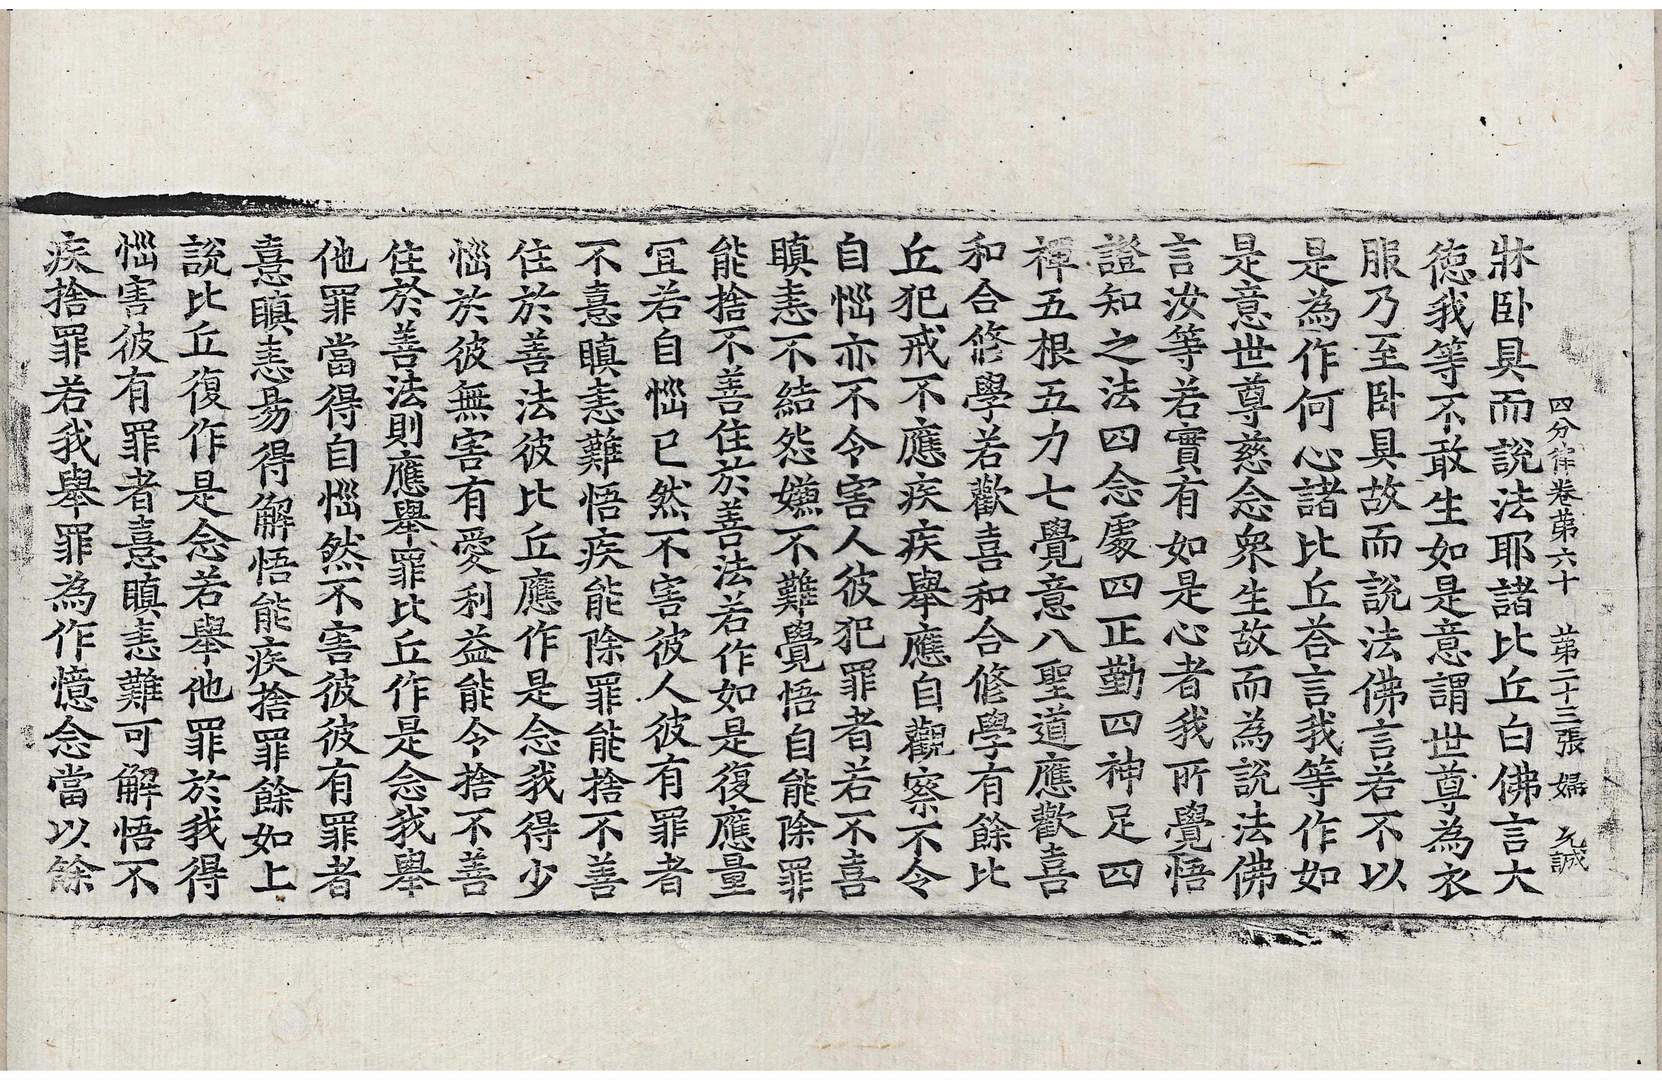 四分律卷第六十 第二十三張 婦 元誠
牀卧具而說法耶諸比丘白佛言大
德我等不敢生如是意謂世尊為衣
服乃至卧具故而說法佛言若不以
是為作何心諸比丘荅言我等作如
是意世尊慈念衆生故而為說法佛
言汝等若實有如是心者我所覺悟
證知之法四念處四正勤四神足四
禪五根五力七覺意八聖道應歡喜
和合修學若歡喜和合修學有餘比
丘犯戒不應疾疾舉應自觀察不令
自惱亦不令害人彼犯罪者若不喜
瞋恚不結怨嫌不難覺悟自能除罪
能捨不善住於善法若作如是復應量
宜若自惱已然不害彼人彼有罪者
不憙瞋恚難悟疾能除罪能捨不善
住於善法彼比丘應作是念我得少
惱於彼無害有愛利益能令捨不善
住於善法則應舉罪比丘作是念我舉
他罪當得自惱然不害彼彼有罪者
憙瞋恚易得解悟能疾捨罪餘如上
說比丘復作是念若舉他罪於我得
惱害彼有罪者憙瞋恚難可解悟不
疾捨罪若我舉罪為作憶念當以餘